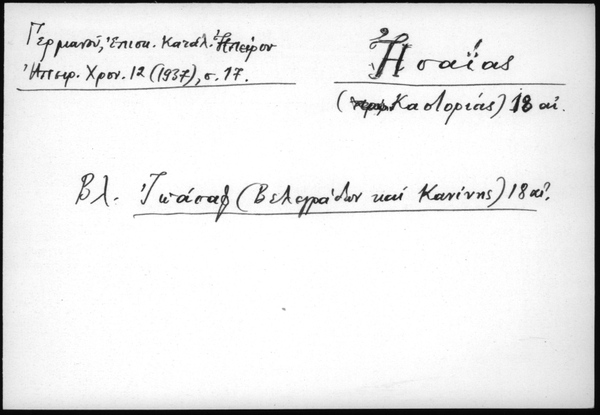 Γερμανοῦ, Ἐπισκ. Κατάλ. Ἠπείρου
Ἠπειρ. Χρον. 12 (1937), σ. 17.
Ἠσαΐας
(Καστοριάς) 18 αἰ.
Βλ. Ἰωάσαφ (Βελεγράδων καί Κανίνης) 18 αἰ.